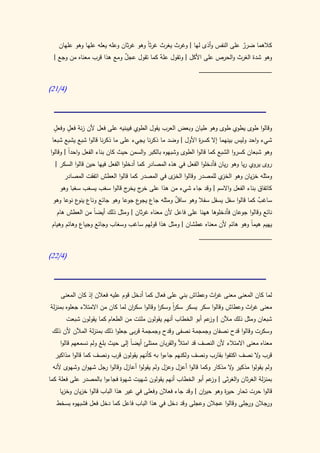 كلاهما ضررٌ على النفس وأذى لها | وغرث يغرث غرثاً وهو غرثان وعله يعله علها وهو علهان
وهو شدة الغرث والحرص على الأكل | وتقول علهٌ كما تقول عجلٌ ومع هذا قرب معناه من وجع |
(21/4)
وقالوا طوى يطوي طوى وهو طيان وبعض العرب يقول الطوي فيبنيه على فعل لأن زنة فعلٍ وفعلٍ
شيء واحد وليس بينهما إلا كسرة الأول | وضد ما ذكرنا يجيء على ما ذكرنا قالوا شبع يشبع شبعا
وهو شبعان كسروا الشبع كما قالوا الطوى وشبهوه بالكبر والسمن حيث كان بناء الفعل واحداً | وقالوا
روى يروى ريا وهو ريان فأدخلوا الفعل في هذه المصادر كما أدخلوا الفعل فيها حين قالوا السكر |
ومثله خزيان وهو الخزي للمصدر وقالوا الخزى في المصدر كما قالوا العطش اتفقت المصادر
كاتفاق بناء الفعل والاسم | وقد جاء شيء من هذا على خرج يخرج قالوا سغب يسغب سغبا وهو
ساغبٌ كما قالوا سفل يسفل سفلا وهو سافلٌ ومثله جاع يجوع جوعا وهو جائع وناع ينوع نوعا وهو
نائع وقالوا جوعان فأدخلوها ههنا على فاعل لأن معناه غرثان | ومثل ذلك أيضاً من العطش هام
يهيم هيماً وهو هائم لأن معناه عطشان | ومثل هذا قولهم ساغب وسغاب وجائع وجياع وهائم وهيام
(22/4)
لما كان المعنى معنى غراث وعطاش بني على فعال كما أدخل قوم عليه فعلان إذ كان المعنى
معنى غراث وعطاش وقالوا سكر يسكر سكراً وسكرا وقالوا سكران لما كان من الامتلاء جعلوه بمنزلة
شبعان ومثل ذلك ملآن | وزعم أبو الخطاب أنهم يقولون ملئت من الطعام كما يقولون شبعت
وسكرت وقالوا قدح نصفان وجمجمة نصفى وقدح وجمجمة قربى جعلوا ذلك بمنزلة الملآن لأن ذلك
معناه معنى الامتلاء لأن النصف قد امتلأ والقربان ممتلئ أيضاً إلى حيث بلغ ولم نسمعهم قالوا
قرب ولا نصف اكتفوا بقارب ونصف ولكنهم جاءوا به كأنهم يقولون قرب ونصف كما قالوا مذاكير
ولم يقولوا مذكير ولا مذكار وكما قالوا أعزل وعزل ولم يقولوا أعازل وقالوا رجل شهوان وشهوى لأنه
بمنزلة الغرثان والغرثى | وزعم أبو الخطاب أنهم يقولون شهيت شهوة فجاءوا بالمصدر على فعلة كما
قالوا حرت تحار حيرة وهو حيران | وقد جاء فعلان وفعلى في غير هذا الباب قالوا خزيان وخزيا
ورجلان ورجلى وقالوا عجلان وعجلى وقد دخل في هذا الباب فاعل كما دخل فعل فشبهوه بسخط